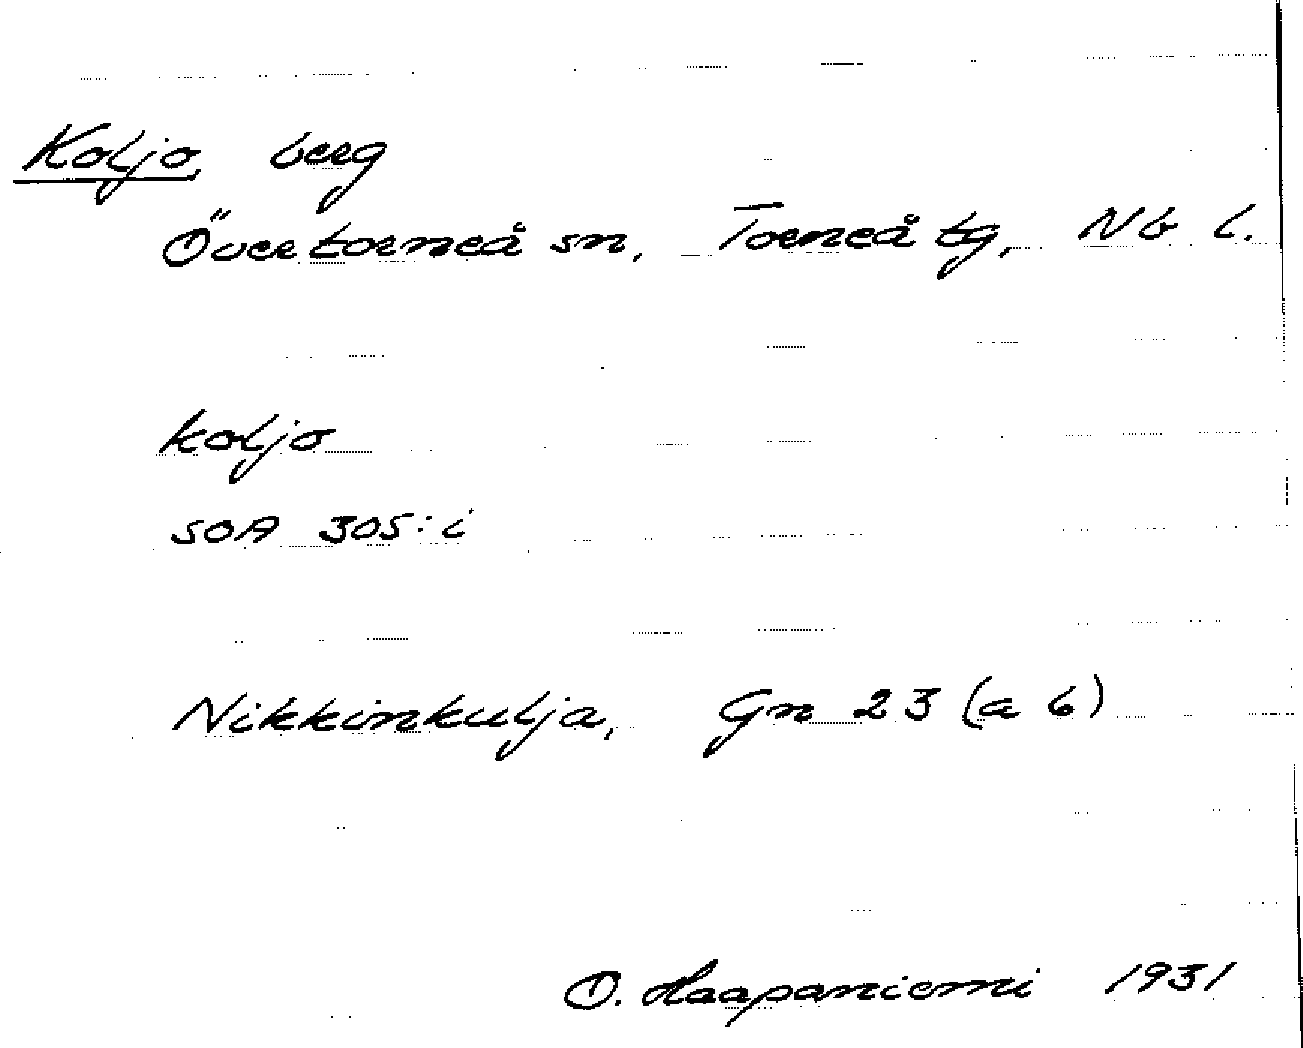 Koljo berg
Övertorneå sn, Torneå tg, Nb l.
koljo
SOA 305:i
Nikkinkulja, Gn 23 (a b)
O. Haapaniemi 1931